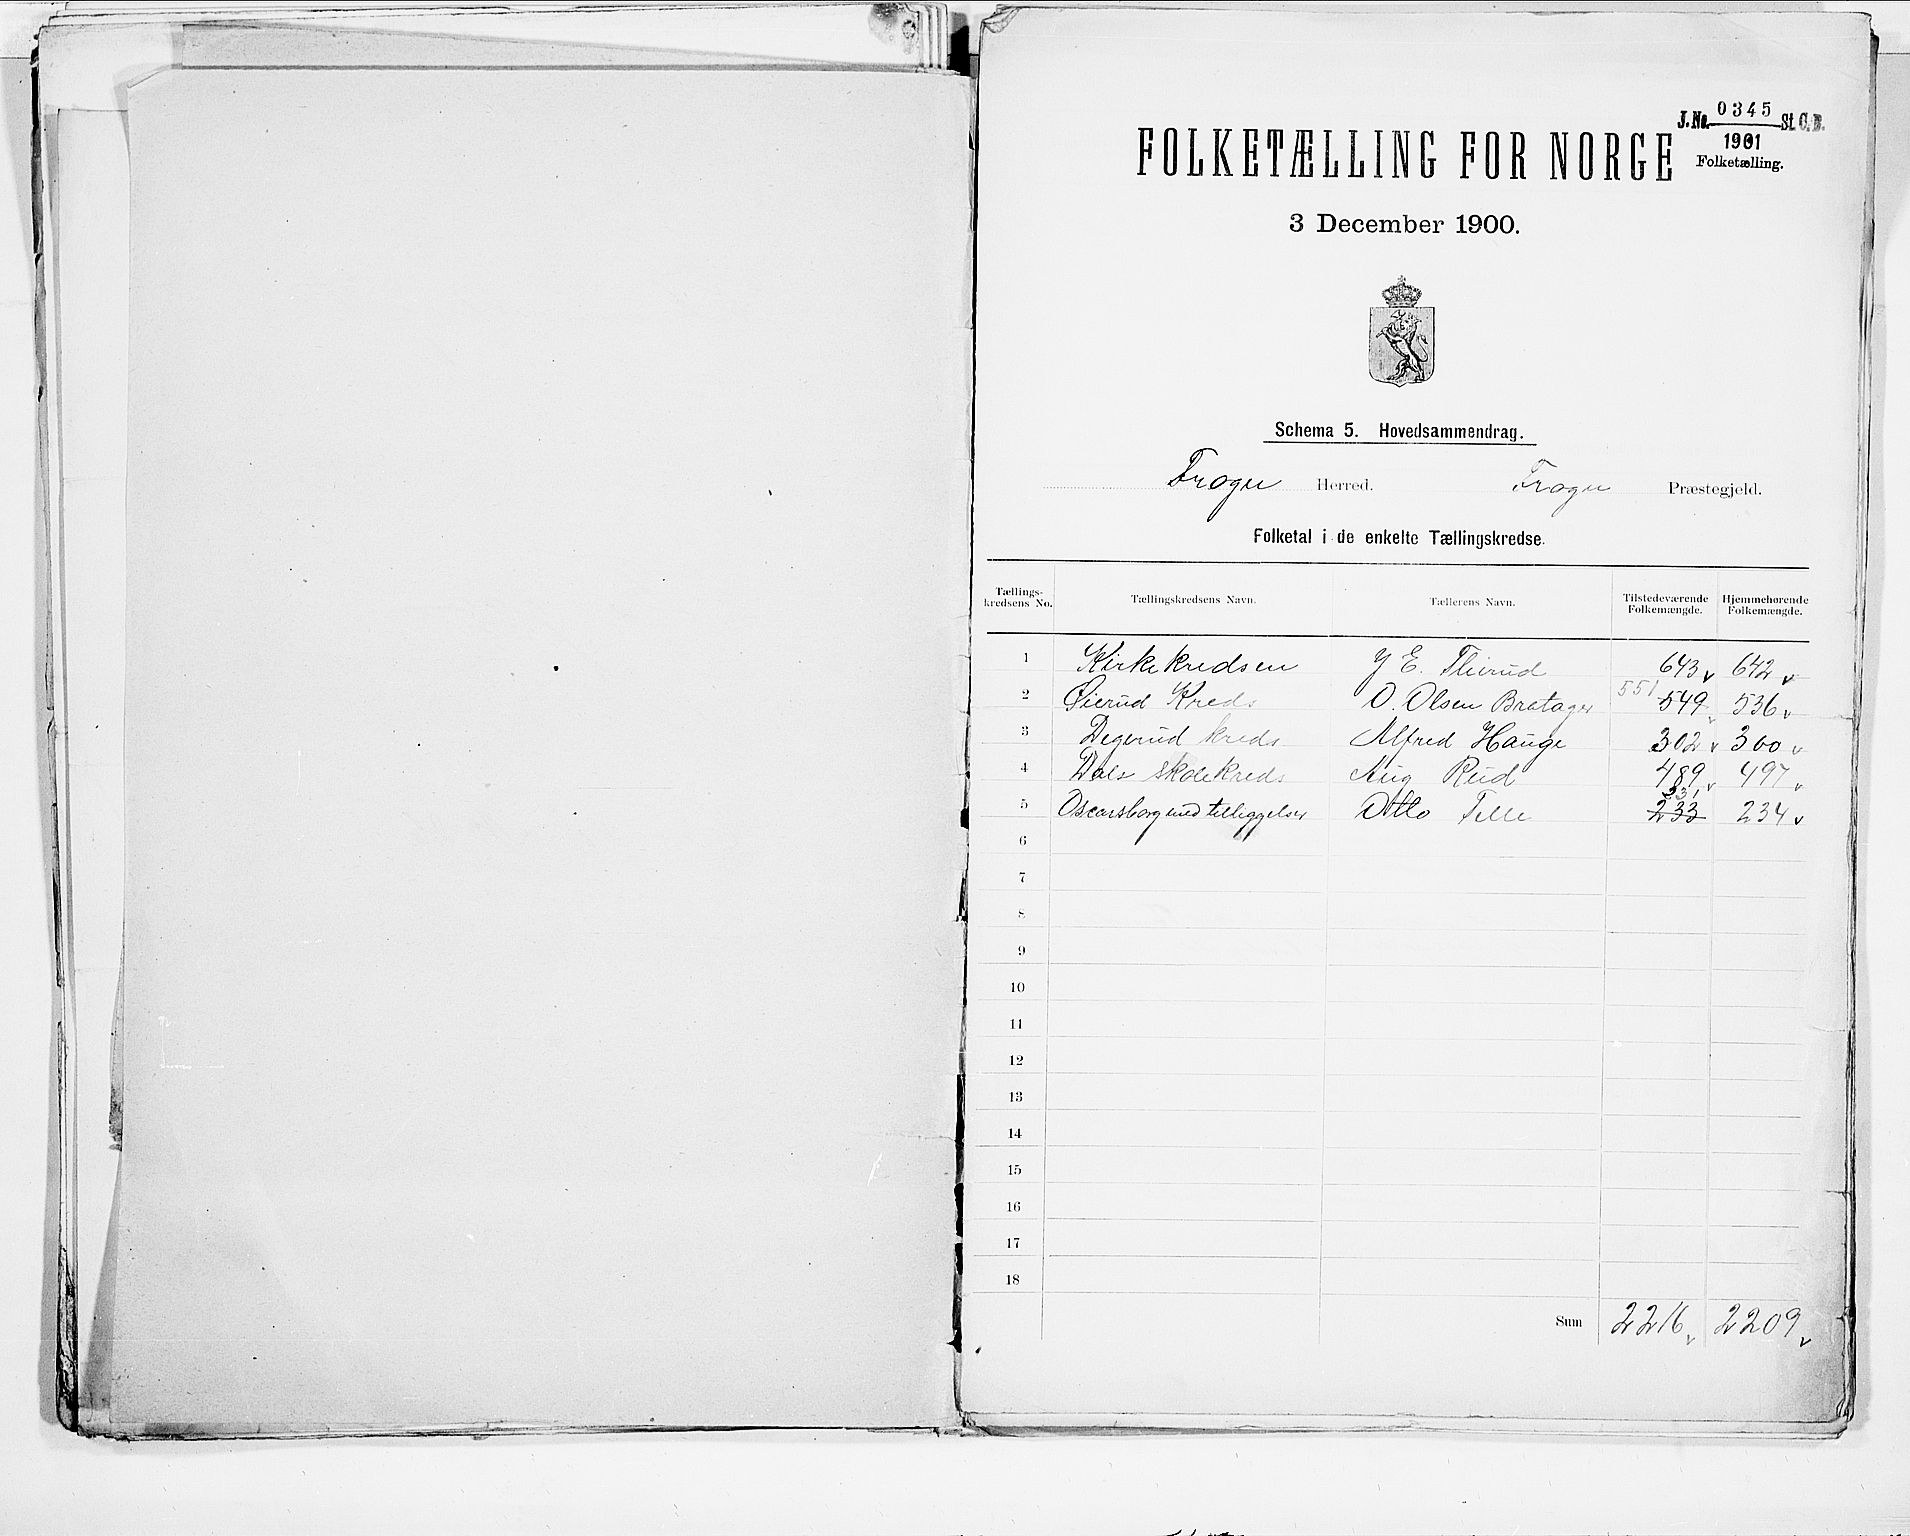 J. No. 0345 St. C. B.
1901
Folketælling.
FOLKETÆLLING FOR NORGE
3 December 1900.
Schema 5. Hovedsammendrag.
Frogn Herred. Frogn Præstegjeld.
Folketal i de enkelte Tællingskredse.
Tællings-kredsens No. Tællingskredsens Navn. Tællerens Navn. Tilstedeværende Folkemængde. Hjemmehørende Folkemængde.
1 Kirkekredsen J E. Thirud 643 642
2 Øierud Kreds O. Olsen Bratager 551 549 536
3 Degerud kreds Alfred Hauge 302 300
4 Dals skolekreds Aug Rud 489 497
5 Oscarsborg med tilliggelser Otto Telle 231 233 234
6
7
8
9
10
11
12
13
14
15
16
17
18
Sum 2216 2209